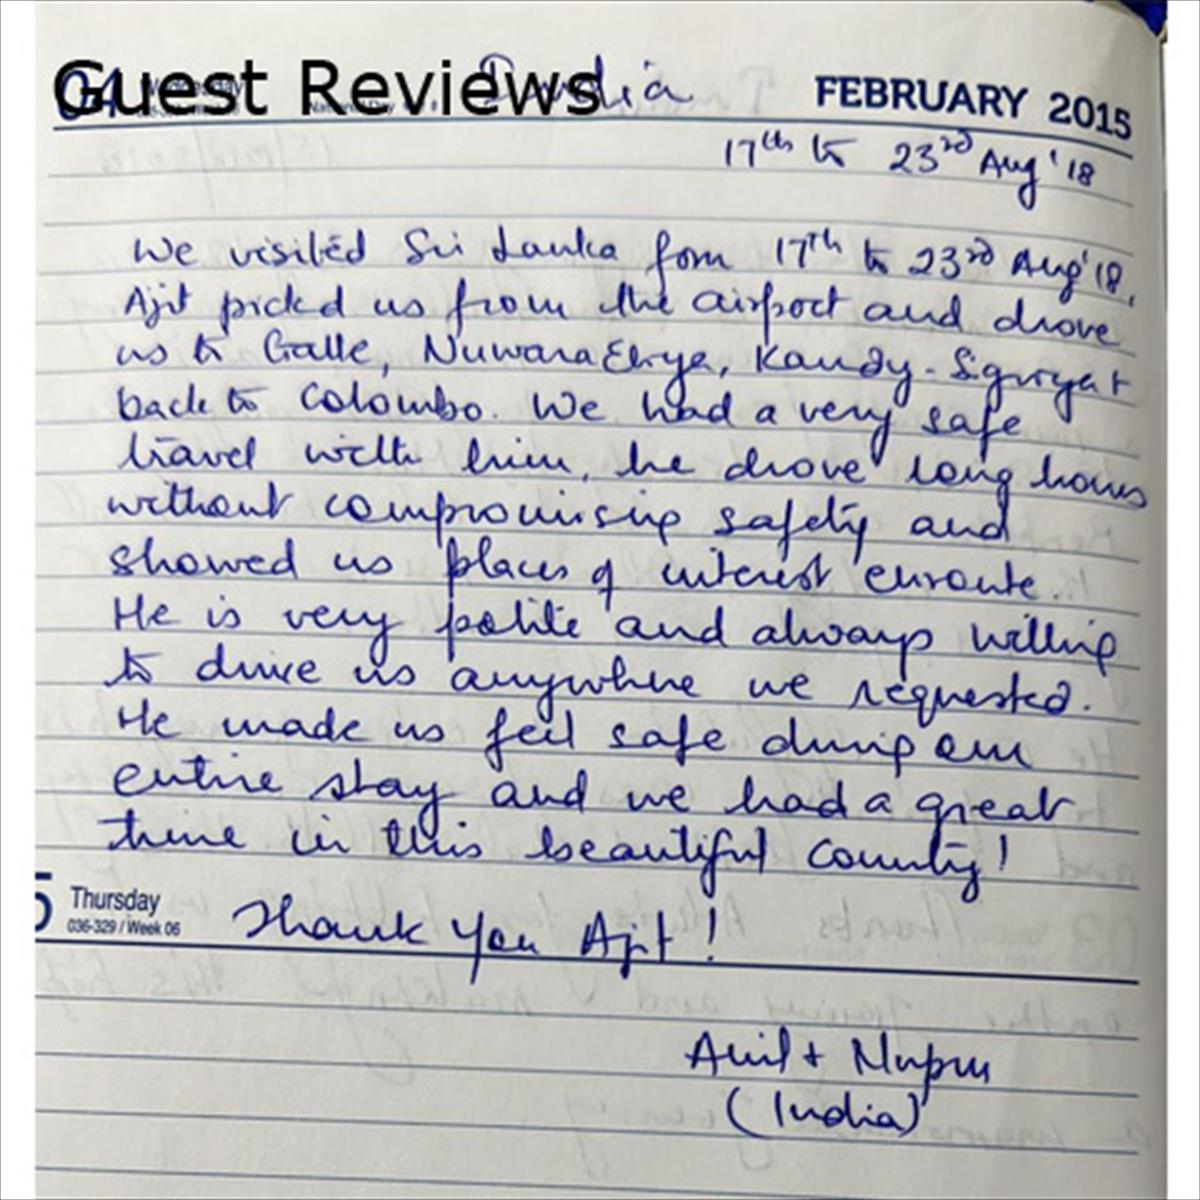 Guest Reviews
04 Wednesday India FEBRUARY 2015
17th to 23rd Aug '18
We visited Sri Lanka form 17th to 23rd Aug '18.
Ajit picked us from the airport and drove
us to Galle, Nuwara Eliya, Kandy - Sigiriya +
back to Colombo. We had a very safe
travel with him, he drove long hours
without compromising safety and
showed us places of interest enroute.
He is very polite and always willing
to drive us anywhere we requested.
He made us feel safe during our
entire stay and we had a great
time in this beautiful country!
5 Thursday
036-329 / Week 06
Thank you Ajit!
Anil + Nupur
(India)